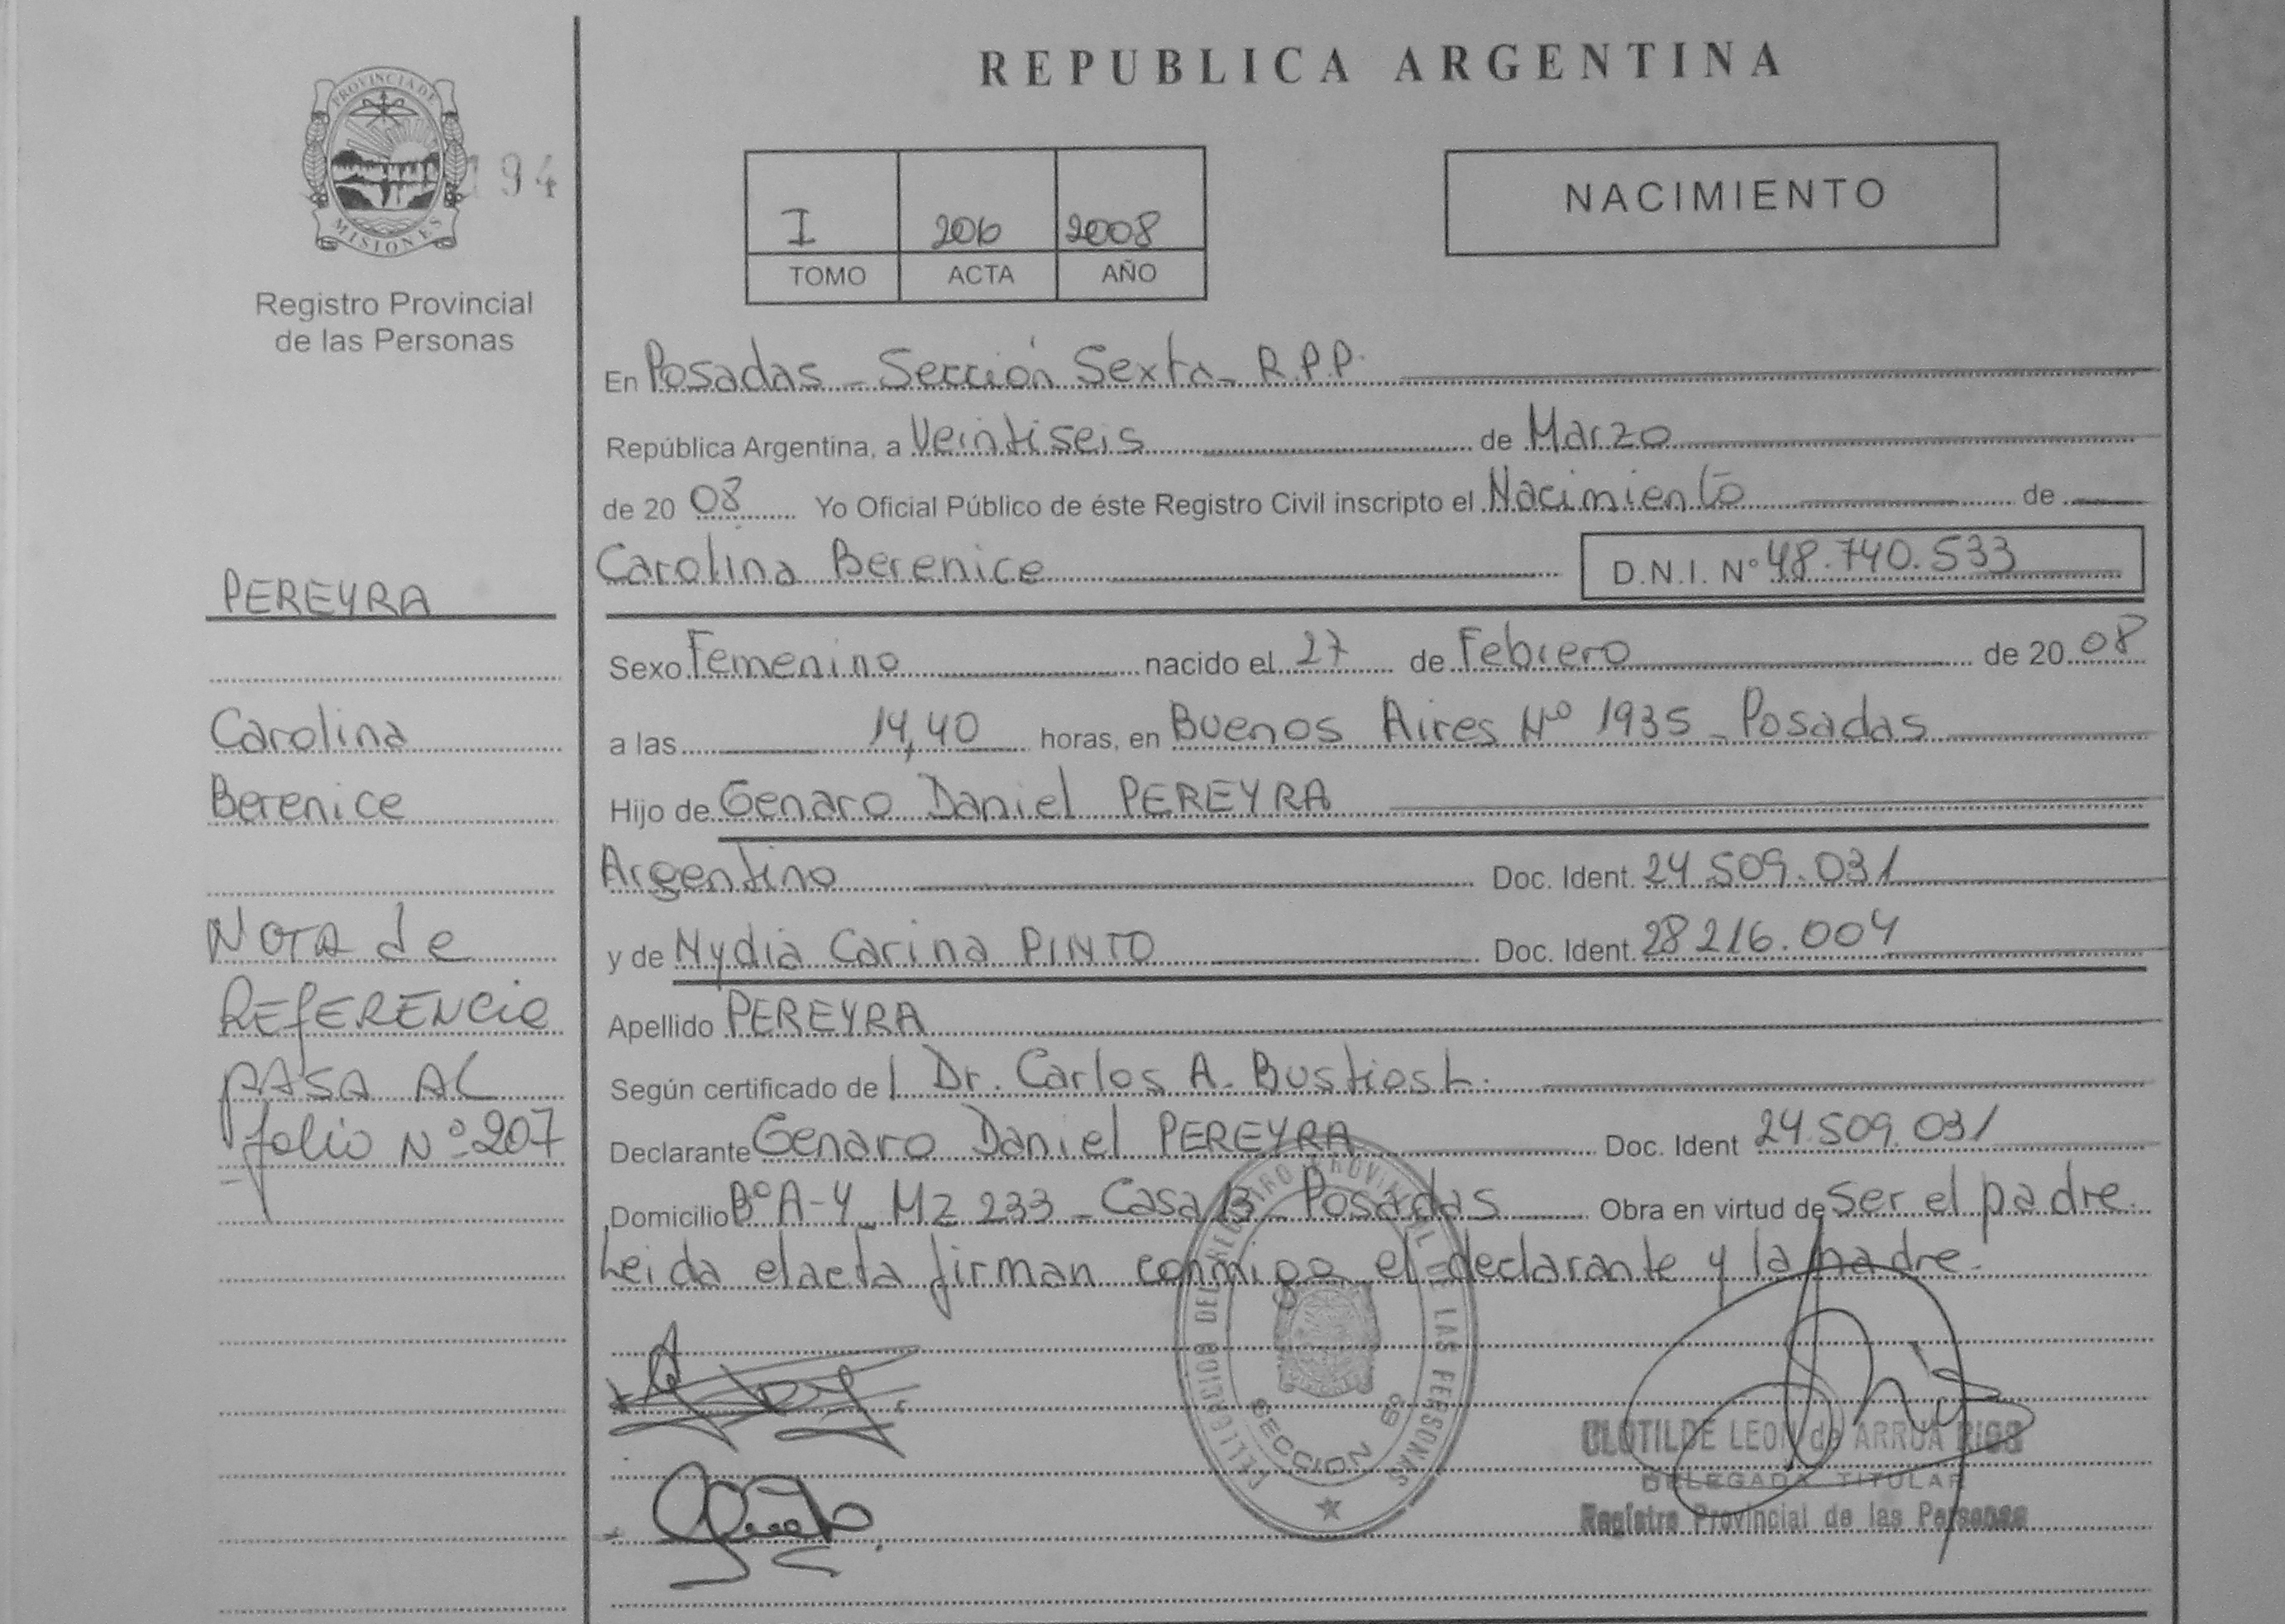 REPUBLICA ARGENTINA
PROVINCIA DE
MISIONES
194
Registro Provincial
de las Personas
I 206 2008
TOMO ACTA AÑO
NACIMIENTO
En Posadas - Sección Sexta - R.P.P.
República Argentina, a Veintiseis de Marzo
de 20 08 Yo Oficial Público de éste Registro Civil inscripto el Nacimiento de
Carolina Berenice D.N.I. N° 48.740.533
Sexo Femenino nacido el 27 de Febrero de 20 08
a las 14,40 horas, en Buenos Aires Nº 1935 - Posadas
Hijo de Genaro Daniel PEREYRA
Argentino Doc. Ident. 24.509.031
y de Nydia Carina PINTO Doc. Ident. 28.216.004
Apellido PEREYRA
Según certificado de Dr. Carlos A.
Declarante Genaro Daniel PEREYRA Doc. Ident 24.509.031
Domicilio Bº A-4 - Mz 233 - Casa 13 - Posadas Obra en virtud de ser el padre.
Leida el acta firman conmigo el declarante y la madre.
PEREYRA
Carolina
Berenice
NOTA de
REFERENCIA
PASA AL
folio Nº 207
DEL REGISTRO PROVINCIAL DE LAS PERSONAS
SECCION 6ª
CLOTILDE LEON de ARRUA RIOS
DELEGADA TITULAR
Registro Provincial de las Personas